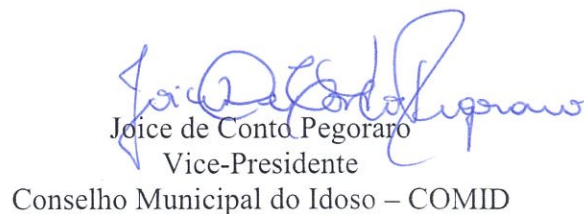 Joice de Conto Pegoraro
Joice de Conto Pegoraro
Vice-Presidente
Conselho Municipal do Idoso – COMID